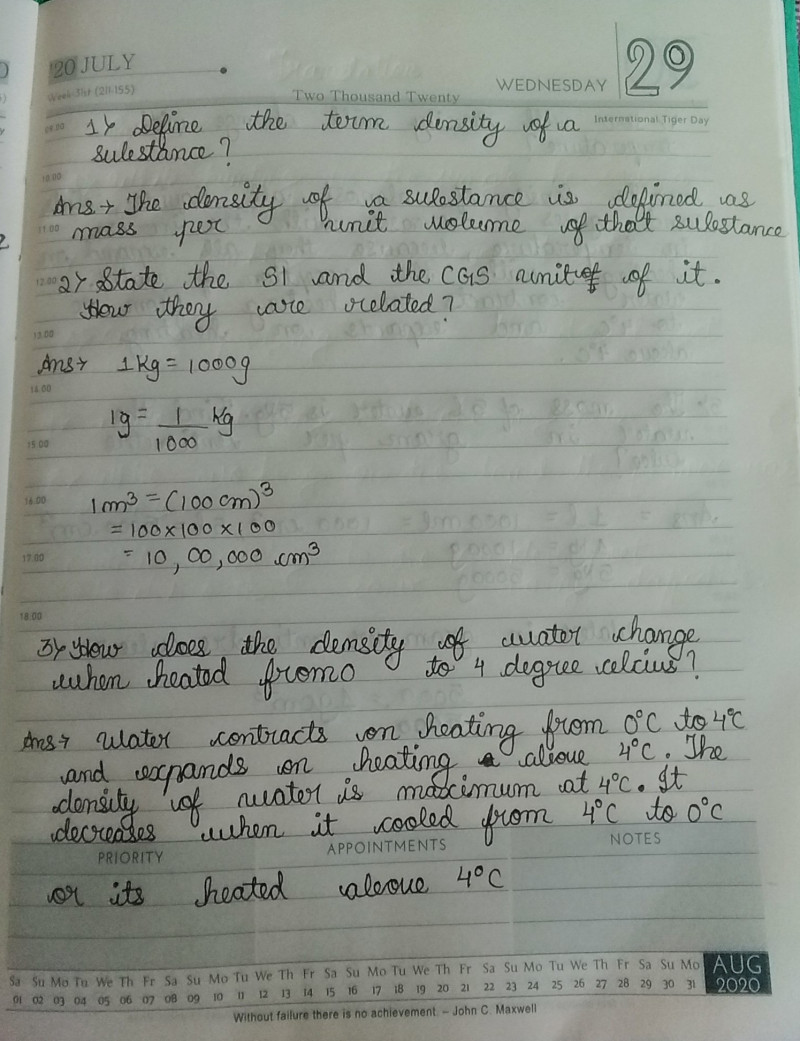 20 JULY
Week-31st (211-155)
Two Thousand Twenty
WEDNESDAY
29
International Tiger Day
09.00
1> Define the term density of a
substance?
10.00
Ans → The density of a substance is defined as
11.00
mass per unit volume of that substance
12.00
2> State the SI and the CGS unit of of it.
How they are related?
13.00
Ans → 1 Kg = 1000g
14.00
1g = 1/1000 Kg
15.00
16.00
1m³ = (100 cm)³
= 100×100×100
17.00
= 10,00,000 cm³
18.00
3> How does the density of water change
when heated from 0 to 4 degree celcius?
Ans → Water contracts on heating from 0°C to 4°C
and expands on heating above 4°C. The
density of water is maximum at 4°C. It
decreases when it cooled from 4°C to 0°C
PRIORITY APPOINTMENTS NOTES
or its heated above 4°C
Sa Su Mo Tu We Th Fr Sa Su Mo Tu We Th Fr Sa Su Mo Tu We Th Fr Sa Su Mo Tu We Th Fr Sa Su Mo
01 02 03 04 05 06 07 08 09 10 11 12 13 14 15 16 17 18 19 20 21 22 23 24 25 26 27 28 29 30 31
AUG
2020
Without failure there is no achievement. – John C. Maxwell